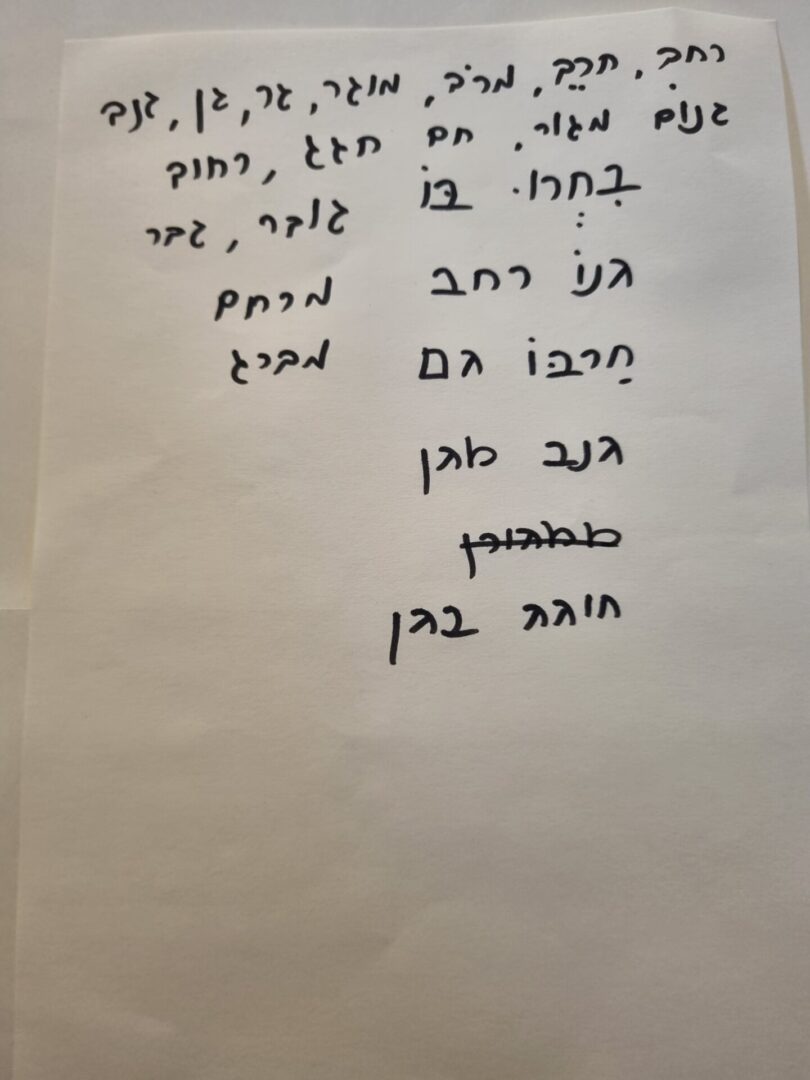 רחב, חרֵב, מרֹב, מוגר, גר, גן, גנב
גנום מגור, חם חגג, רחוב
בִחרו. בוֹ גובר, גבר
גנוֹ רחב מרחם
חַרבוֹ גם מברג
גנב מגן
חוגג בגן